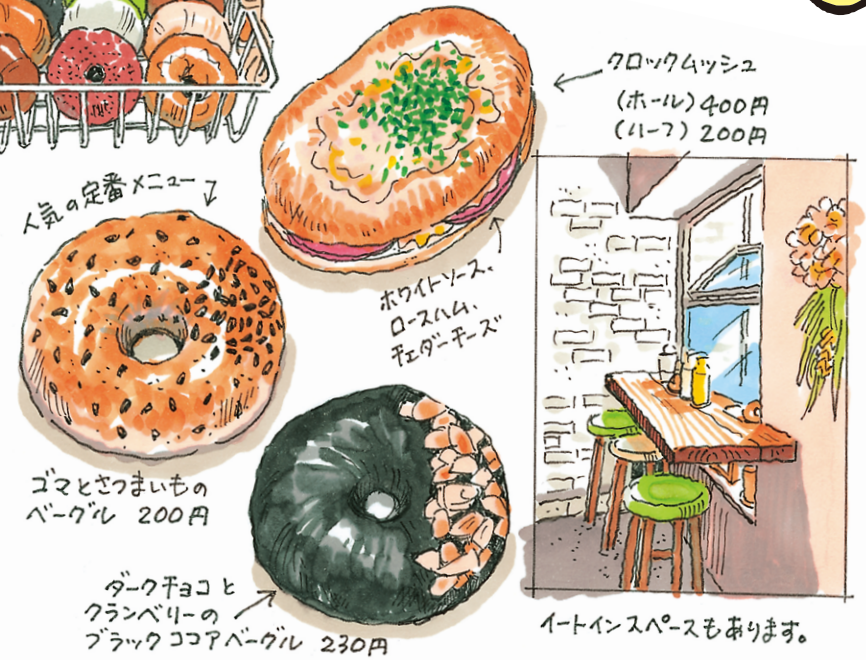 クロックムッシュ
(ホール)400円
(ハーフ)200円
人気の定番メニュー
ホワイトソース、
ロースハム、
チェダーチーズ
ゴマとさつまいもの
ベーグル 200円
ダークチョコと
クランベリーの
ブラックココアベーグル 230円
イートインスペースもあります。